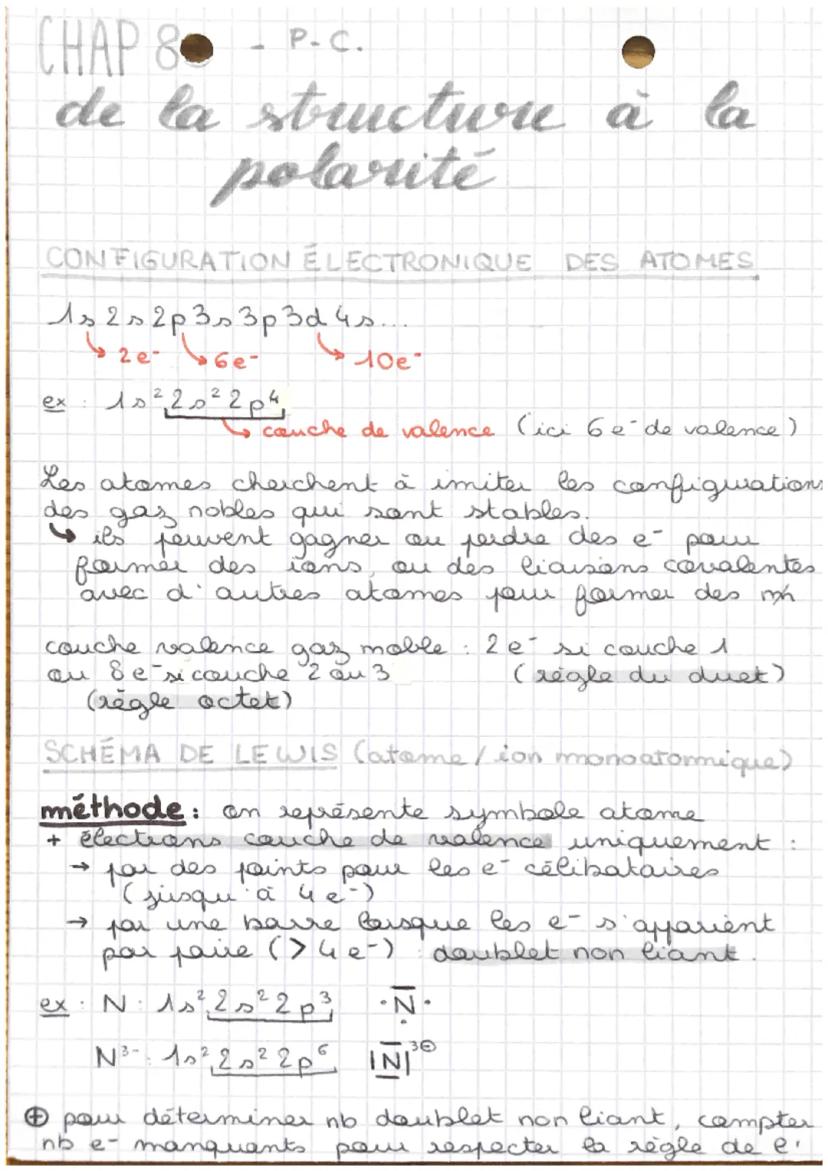 CHAP 8 - P-C.
de la structure à la
polarité
CONFIGURATION ÉLECTRONIQUE DES ATOMES
1s 2s 2p 3s 3p 3d 4s...
↳ 2e⁻ ↳ 6e⁻ ↳ 10e⁻
ex : 1s² 2s² 2p⁴
↳ couche de valence (ici 6e⁻ de valence)
Les atomes cherchent à imiter les configurations
des gaz nobles qui sont stables.
↳ ils peuvent gagner ou perdre des e⁻ pour
former des ions, ou des liaisons covalentes
avec d'autres atomes pour former des
couche valence gaz noble : 2e⁻ si couche 1
ou 8e⁻ si couche 2 ou 3 (règle du duet)
(règle octet)
SCHÉMA DE LEWIS (atome / ion monoatomique)
méthode : on représente symbole atome
+ électrons couche de valence uniquement :
→ par des points pour les e⁻ célibataires
(jusqu'à 4e⁻)
→ par une barre lorsque les e⁻ s'apparient
par paire (> 4e⁻) : doublet non liant.
ex : N : 1s² 2s² 2p³ ·N̅·
N³⁻ : 1s² 2s² 2p⁶ |N̅|³⊖
⊕ pour déterminer nb doublet non liant, compter
nb e⁻ manquants pour respecter la règle de l'